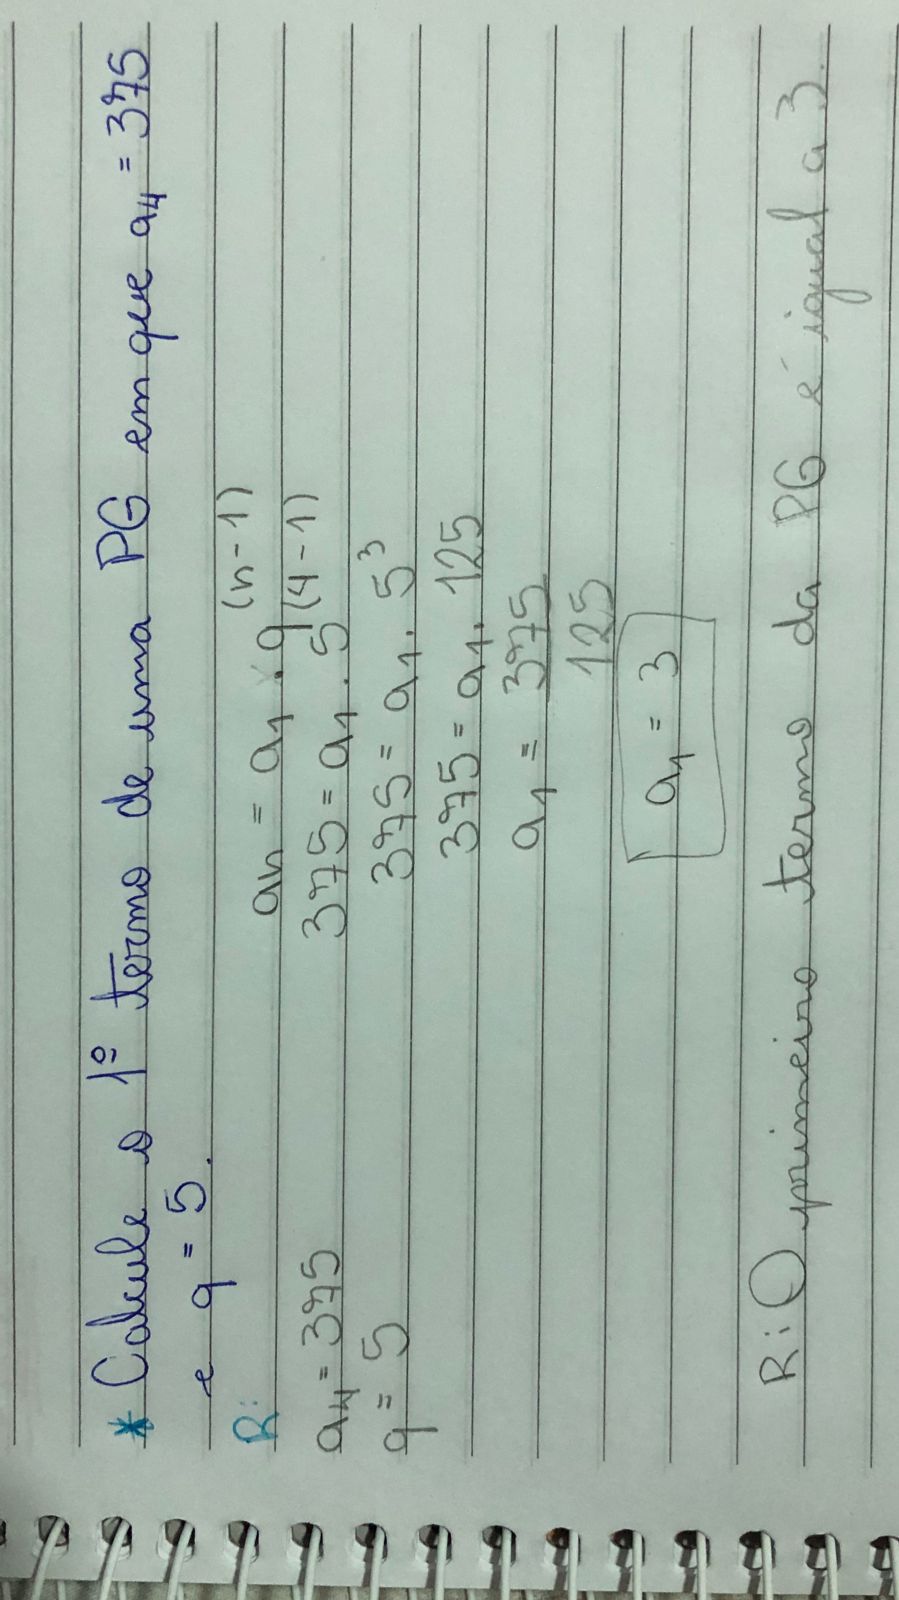 * Calcule o 1º termo de uma PG em que a₄ = 375
e q = 5.
R:
aₙ = a₁ . q⁽ⁿ⁻¹⁾
a₄ = 375
375 = a₁ . 5⁽⁴⁻¹⁾
q = 5
375 = a₁ . 5³
375 = a₁ . 125
a₁ = 375
125
a₁ = 3
R: O primeiro termo da PG é igual a 3.